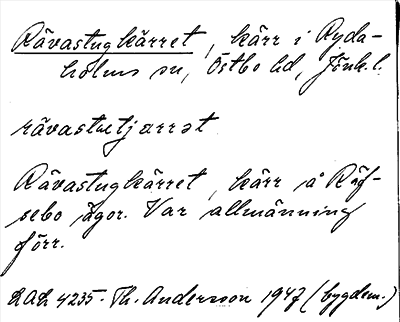 Rävastugkärret, kärr i Ryda-
holms sn, Östbo hd, Jönk. l.
rävastutjarrət
Rävastugkärret, kärr å Räf-
sebo ägor. Var allmänning
förr.
LAL 4235. Th. Andersson 1947 (bygdem.)